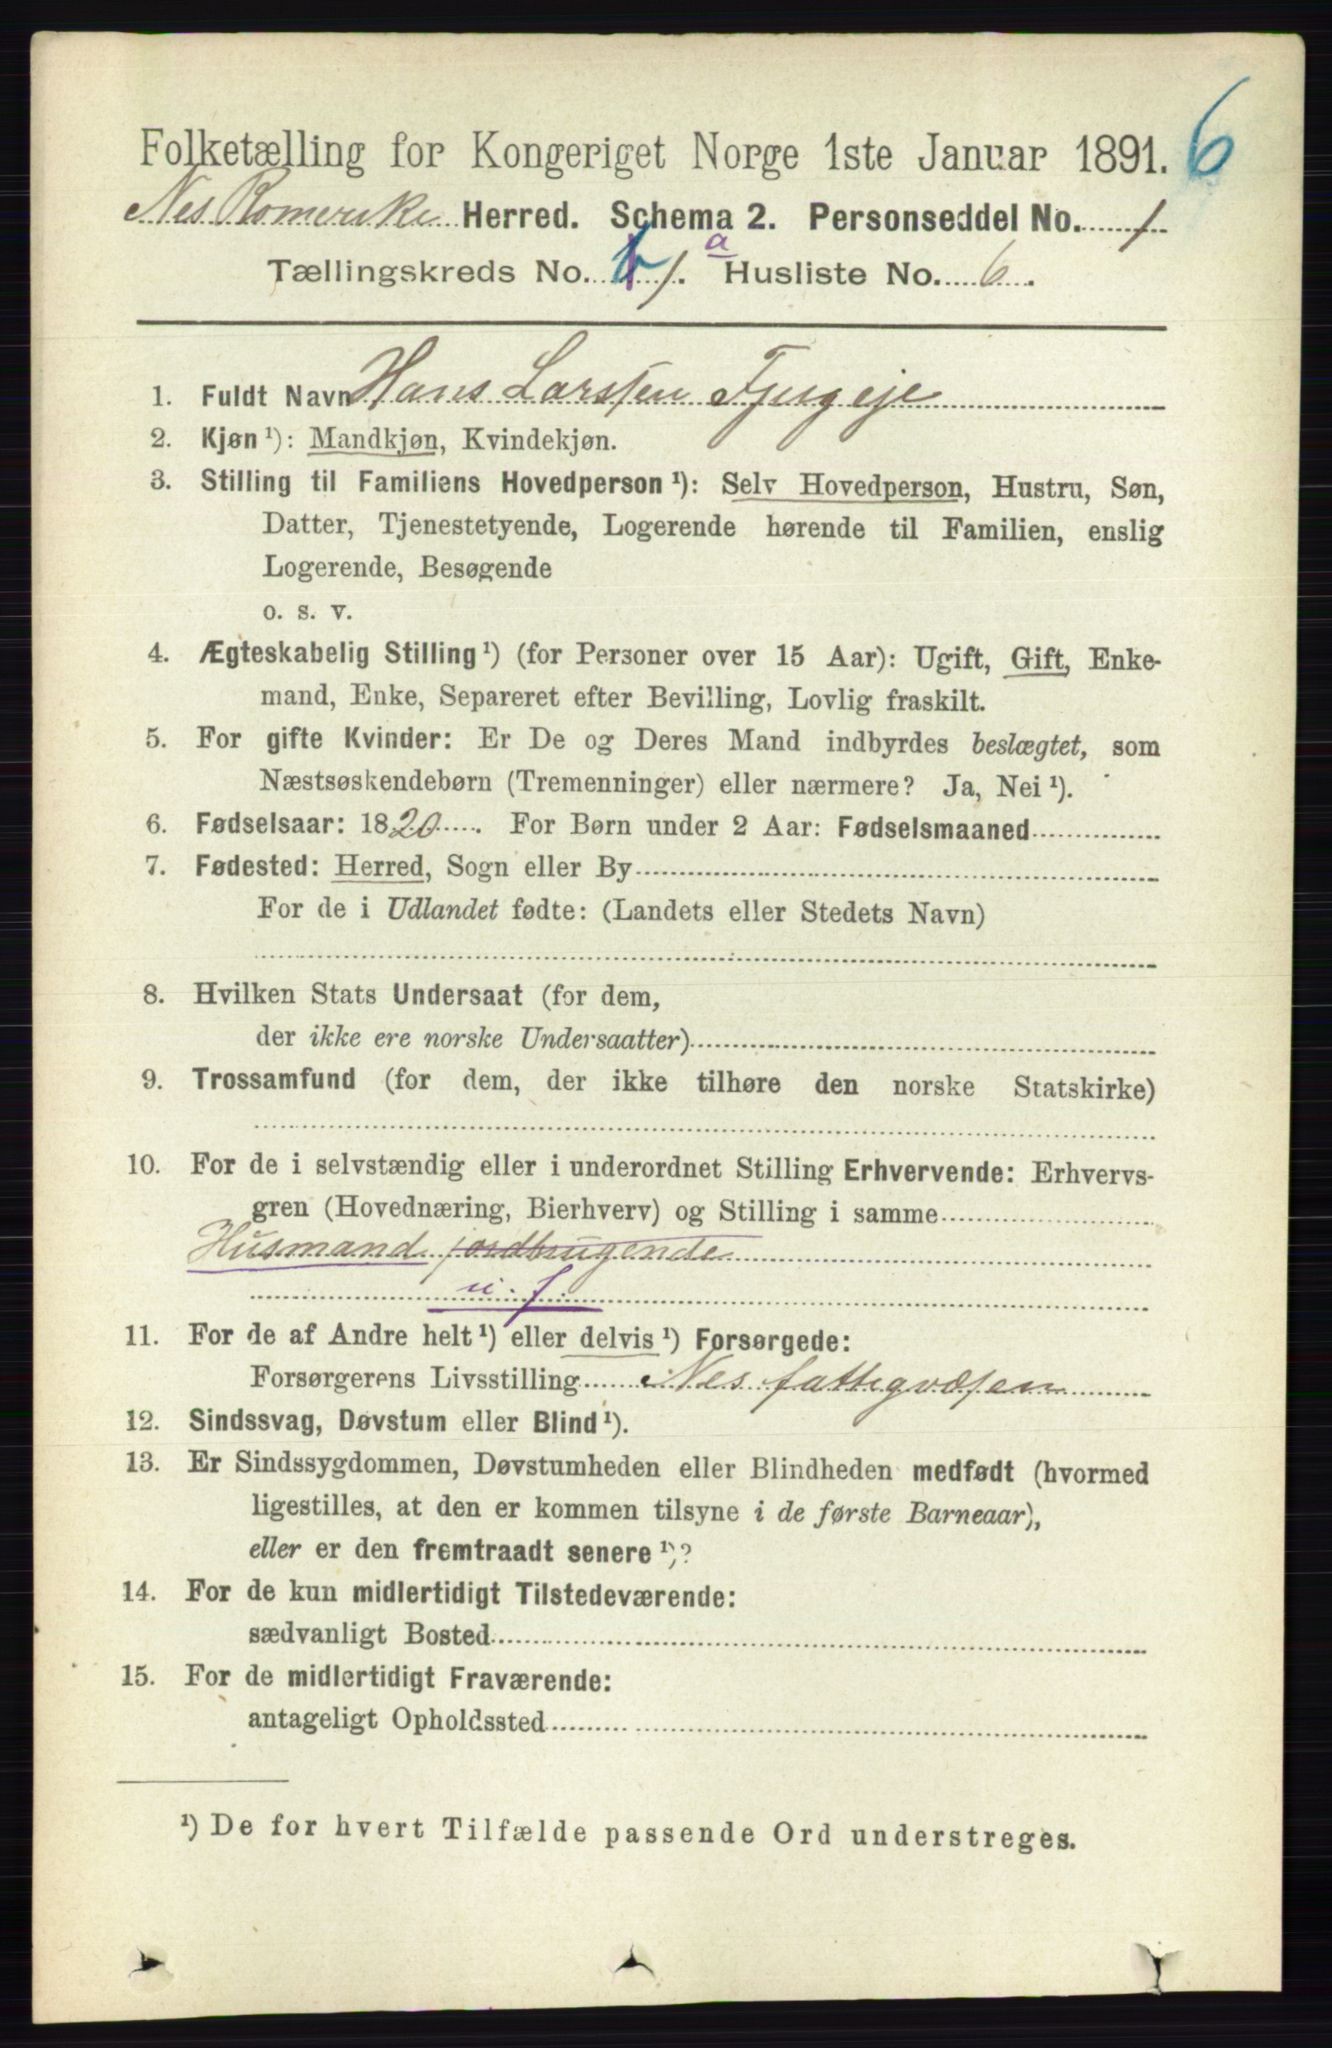 6
Folketælling for Kongeriget Norge 1ste Januar 1891.
Nes Romerike Herred. Schema 2. Personseddel No. 1
Tællingskreds No. 1. a Husliste No. 6.
1. Fuldt Navn Hans Larssen
2. Kjøn ¹): Mandkjøn, Kvindekjøn.
3. Stilling til Familiens Hovedperson ¹): Selv Hovedperson, Hustru, Søn,
Datter, Tjenestetyende, Logerende hørende til Familien, enslig
Logerende, Besøgende
o. s. v.
4. Ægteskabelig Stilling ¹) (for Personer over 15 Aar): Ugift, Gift, Enke-
mand, Enke, Separeret efter Bevilling, Lovlig fraskilt.
5. For gifte Kvinder: Er De og Deres Mand indbyrdes beslægtet, som
Næstsøskendebørn (Tremenninger) eller nærmere? Ja, Nei ¹).
6. Fødselsaar: 1820. For Børn under 2 Aar: Fødselsmaaned
7. Fødested: Herred, Sogn eller By
For de i Udlandet fødte: (Landets eller Stedets Navn)
8. Hvilken Stats Undersaat (for dem,
der ikke ere norske Undersaatter)
9. Trossamfund (for dem, der ikke tilhøre den norske Statskirke)
10. For de i selvstændig eller i underordnet Stilling Erhvervende: Erhvervs-
gren (Hovednæring, Bierhverv) og Stilling i samme
Husmand jordbrugende
u. j.
11. For de af Andre helt ¹) eller delvis ¹) Forsørgede:
Forsørgerens Livsstilling Nes fattigvæsen
12. Sindssvag, Døvstum eller Blind ¹).
13. Er Sindssygdommen, Døvstumheden eller Blindheden medfødt (hvormed
ligestilles, at den er kommen tilsyne i de første Barneaar),
eller er den fremtraadt senere ¹)?
14. For de kun midlertidigt Tilstedeværende:
sædvanligt Bosted
15. For de midlertidigt Fraværende:
antageligt Opholdssted
¹) De for hvert Tilfælde passende Ord understreges.